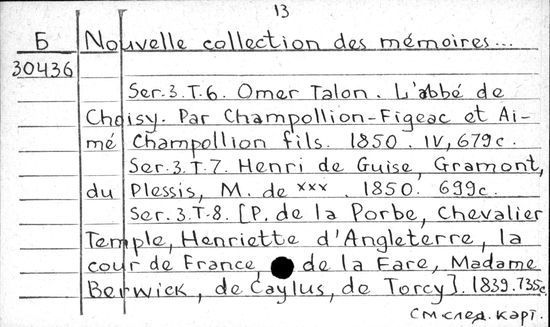 13
Б Nouvelle collection des mémoires...
30436
Ser.3.T.6. Omer Talon. L'abbé de
Choisy. Par Champollion-Figeac et Ai-
mé Champollion fils. 1850. IV, 679c.
Ser.3.T.7. Henri de Guise, Gramont,
du Plessis, M. de xxx. 1850. 699c.
Ser.3.T-8. [P. de la Porbe, Chevalier
Temple, Henriette d'Angleterre, la
cour de France, de la Fare, Madame
Berwick, de Caylus, de Torcy]. 1839. 735c.
См след. карт.